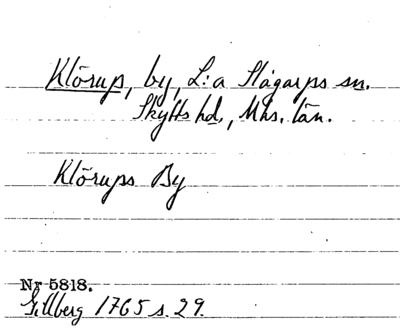 Klörup, by, L:a Slågarps sn.
Skytts hd., Mhs. län.
Klörups By
Nr 5818.
Gillberg 1765 s. 29.